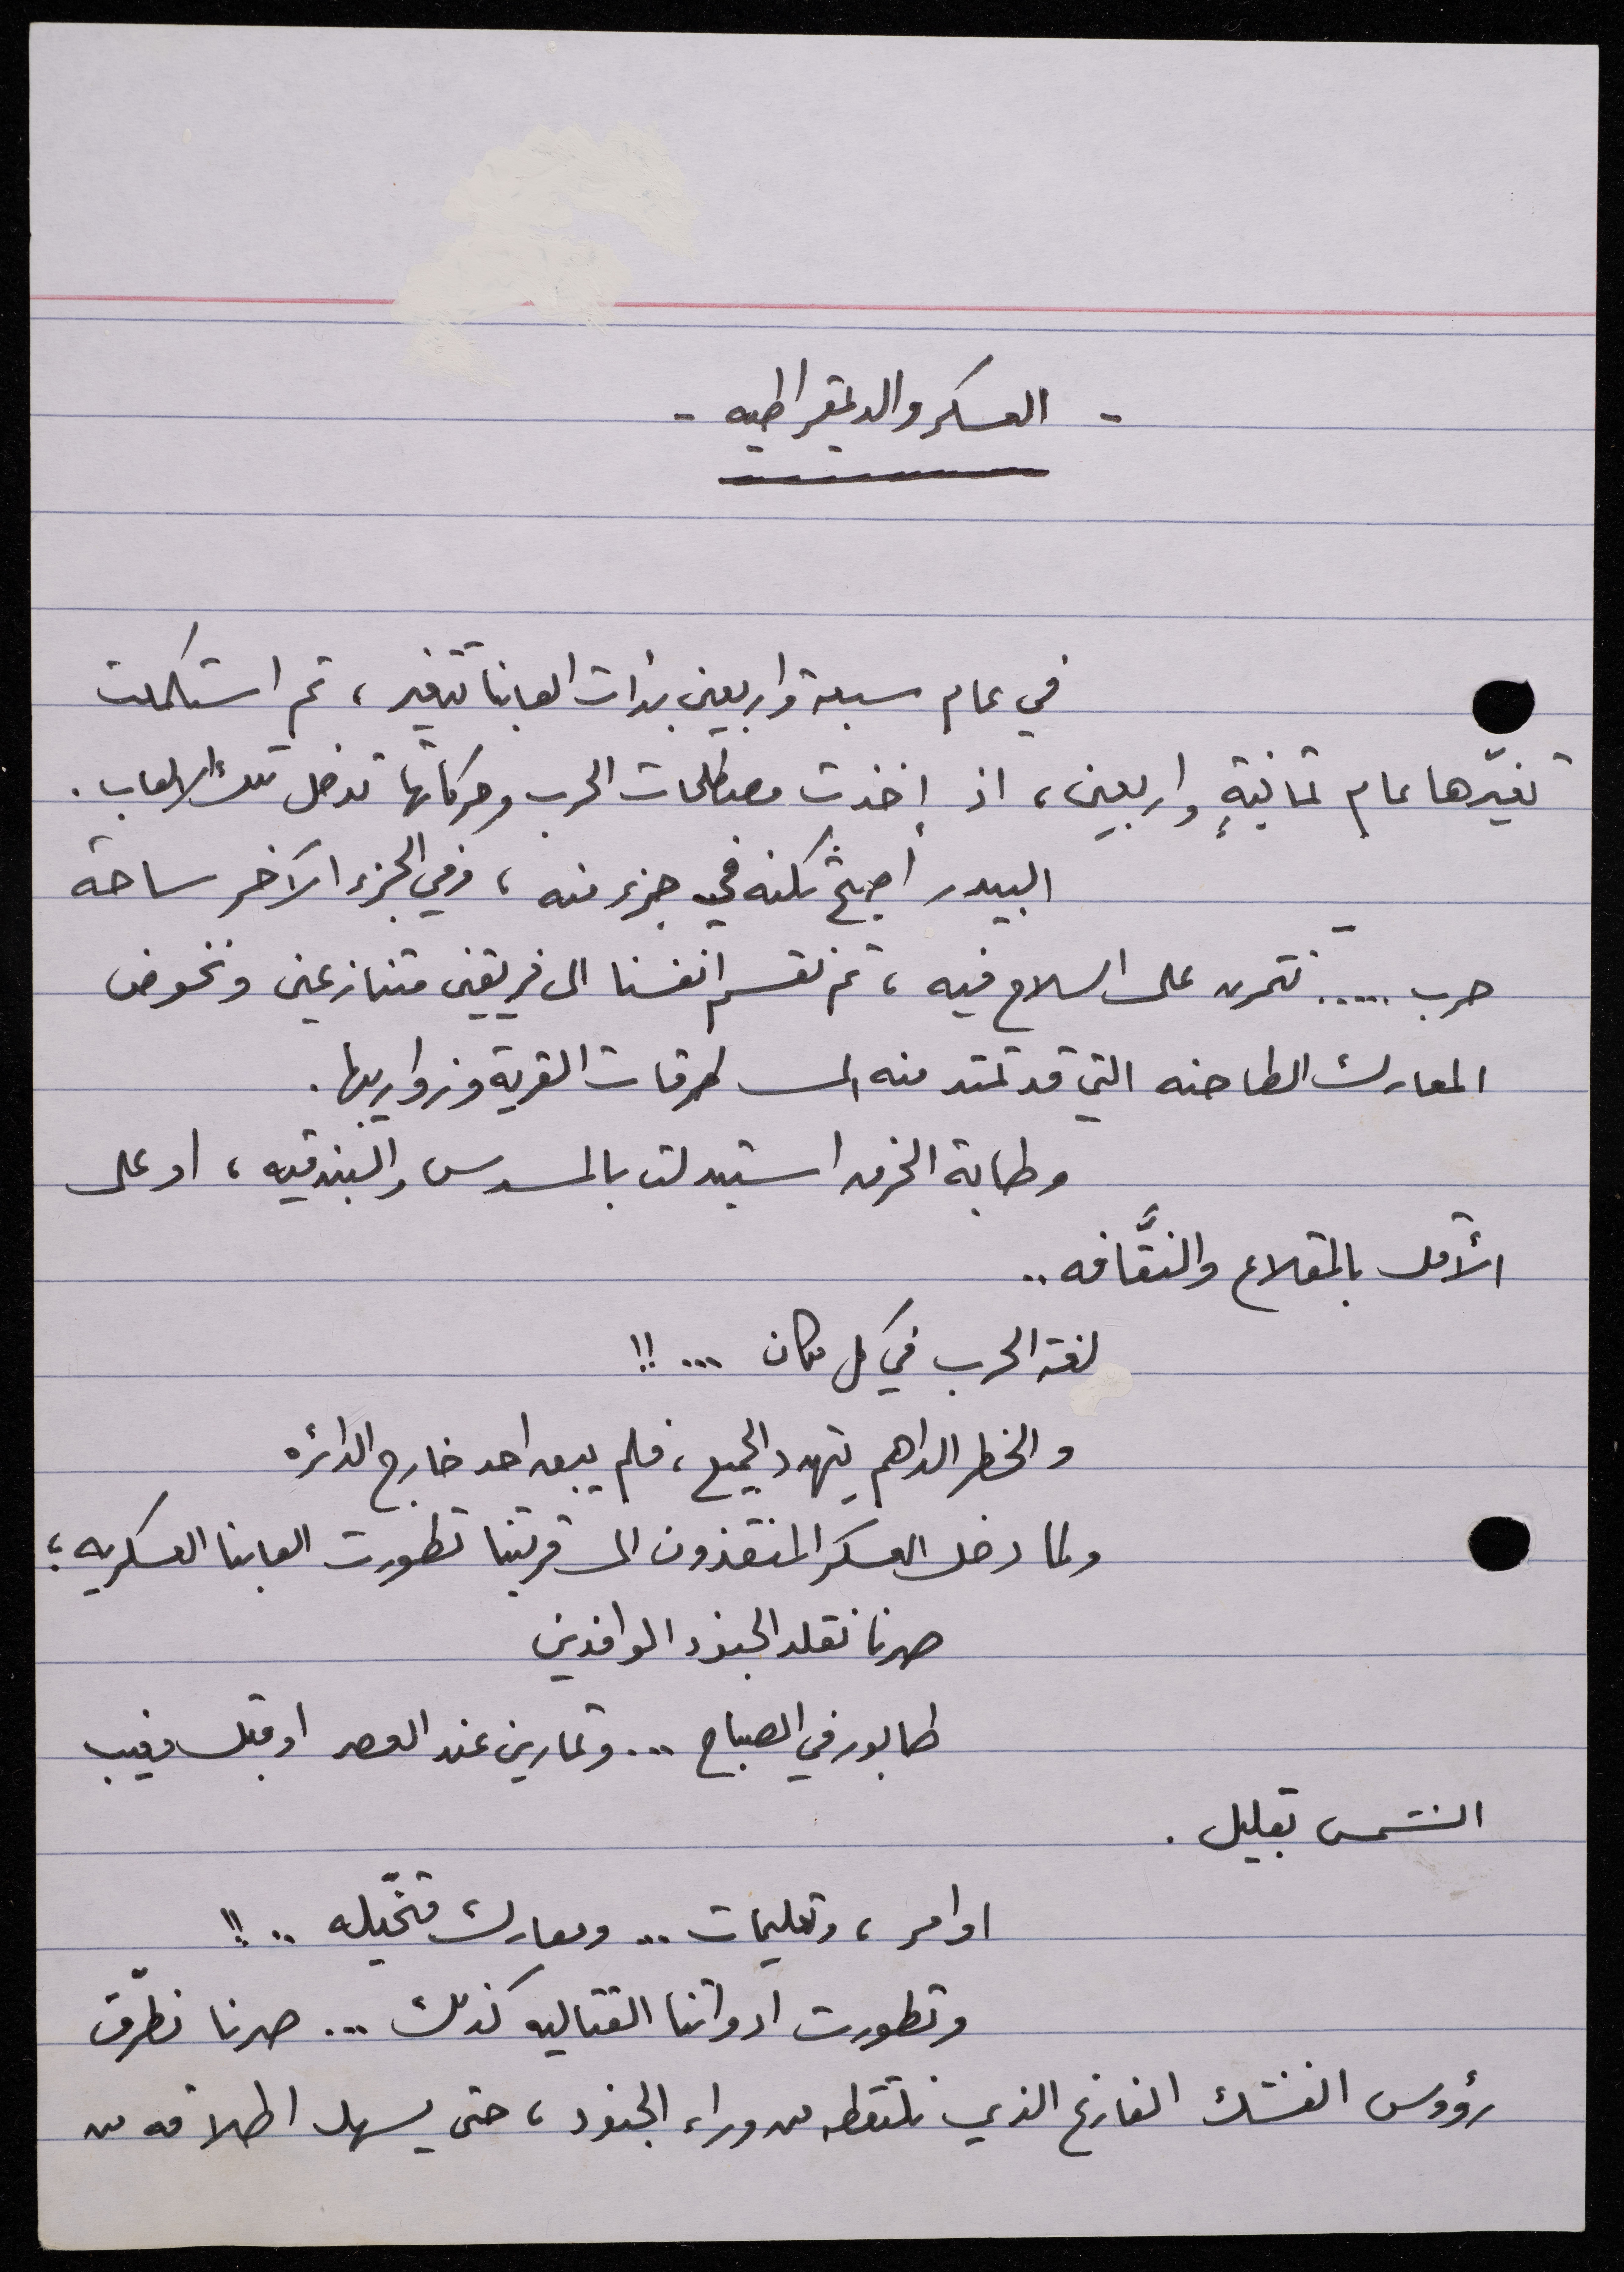 - العسكر والديمقراطيه -
في عام سبعة واربعين بدأت العابنا تتغير ، ثم استكملت
تغيّرها عام ثمانيةٍ واربعين ، اذ أخذت مصطلحات الحرب وحركاتها تدخل تلك الالعاب .
البيدر أصبح ثكنه في جزء منه ، وفي الجزء الآخر ساحة
حرب ..... نتمرن على السلاح فيه ، ثم نقسم انفسنا الى فريقين متنازعين ونخوض
المعارك الطاحنه التي قد تمتد منه الى طرقات القرية وزواريبها .
وطابة الخرق استبدلت بالمسدس والبندقيه ، او على
الأقل بالمقلاع والنقَّافه ..
لغة الحرب في كل مكان ... !!
والخطر الداهم يتهدد الجميع ، فلم يبق احد خارج الدائره
ولما دخل العسكر المنقذون الى قريتنا تطورت العابنا العسكريه ؛
صرنا نقلد الجنود الوافدين
طابور في الصباح ... وتمارين عند العصر او قبل مغيب
الشمس بقليل .
اوامر ، وتعليمات ... ومعارك متخيّله .. !!
وتطورت ادواتنا القتاليه كذلك ... صرنا نطرّق
رؤوس الفشك الفارغ الذي نلتقطه من وراء الجنود ، حتى يسهل اطلاقه من